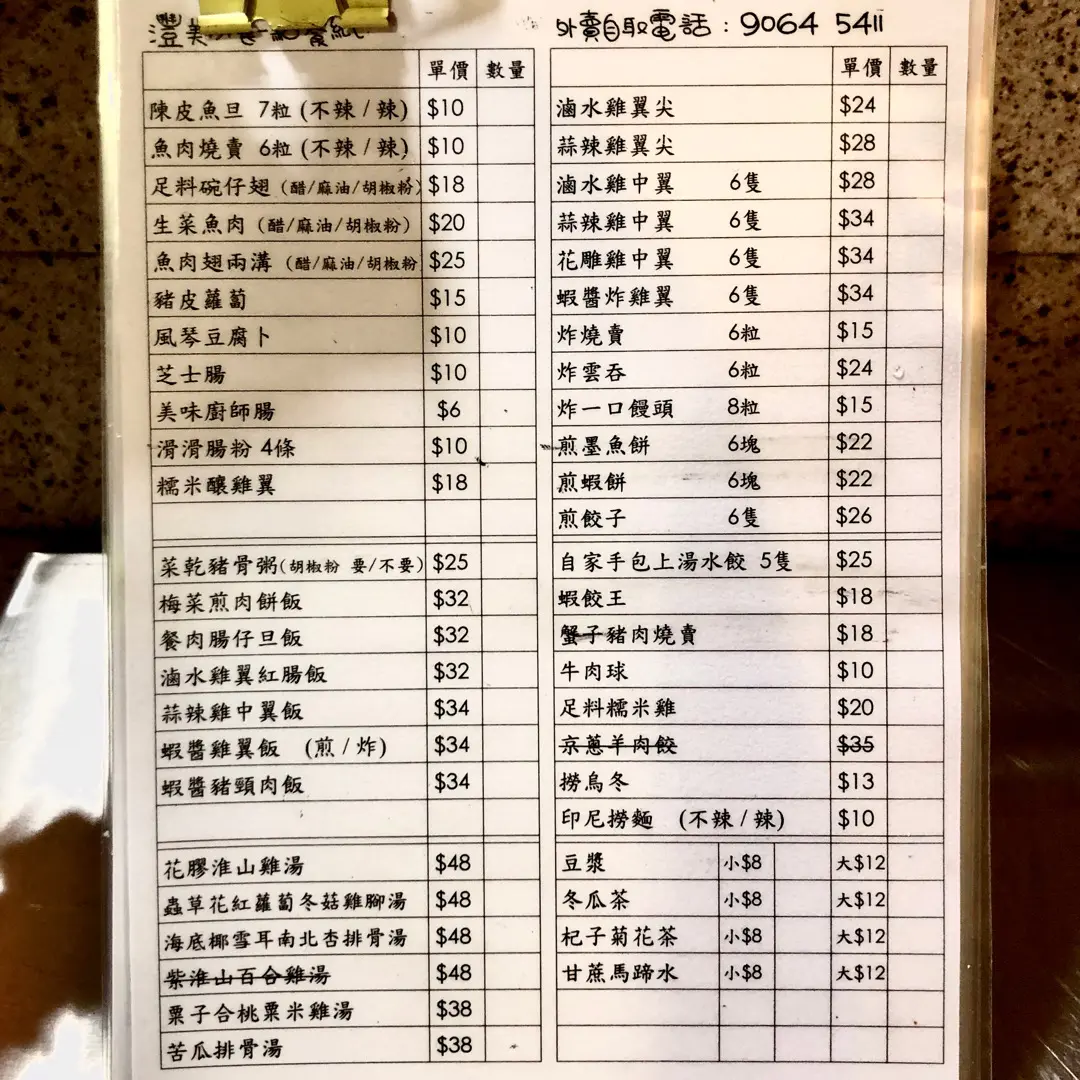 灃美
外賣自取電話：9064 5411
單價 數量
陳皮魚旦 7粒 (不辣 / 辣) $10
魚肉燒賣 6粒 (不辣 / 辣) $10
足料碗仔翅 (醋/麻油/胡椒粉) $18
生菜魚肉 (醋/麻油/胡椒粉) $20
魚肉翅兩溝 (醋/麻油/胡椒粉 $25
豬皮蘿蔔 $15
風琴豆腐卜 $10
芝士腸 $10
美味廚師腸 $6
滑滑腸粉 4條 $10
糯米釀雞翼 $18
菜乾豬骨粥(胡椒粉 要/不要) $25
梅菜煎肉餅飯 $32
餐肉腸仔旦飯 $32
滷水雞翼紅腸飯 $32
蒜辣雞中翼飯 $34
蝦醬雞翼飯 (煎 / 炸) $34
蝦醬豬頸肉飯 $34
花膠淮山雞湯 $48
蟲草花紅蘿蔔冬菇雞腳湯 $48
海底椰雪耳南北杏排骨湯 $48
紫淮山百合雞湯 $48
栗子合桃粟米雞湯 $38
苦瓜排骨湯 $38
單價 數量
滷水雞翼尖 $24
蒜辣雞翼尖 $28
滷水雞中翼 6隻 $28
蒜辣雞中翼 6隻 $34
花雕雞中翼 6隻 $34
蝦醬炸雞翼 6隻 $34
炸燒賣 6粒 $15
炸雲吞 6粒 $24
炸一口饅頭 8粒 $15
煎墨魚餅 6塊 $22
煎蝦餅 6塊 $22
煎餃子 6隻 $26
自家手包上湯水餃 5隻 $25
蝦餃王 $18
蟹子豬肉燒賣 $18
牛肉球 $10
足料糯米雞 $20
京蔥羊肉餃 $35
撈烏冬 $13
印尼撈麵 (不辣 / 辣) $10
豆漿 小$8 大$12
冬瓜茶 小$8 大$12
杞子菊花茶 小$8 大$12
甘蔗馬蹄水 小$8 大$12